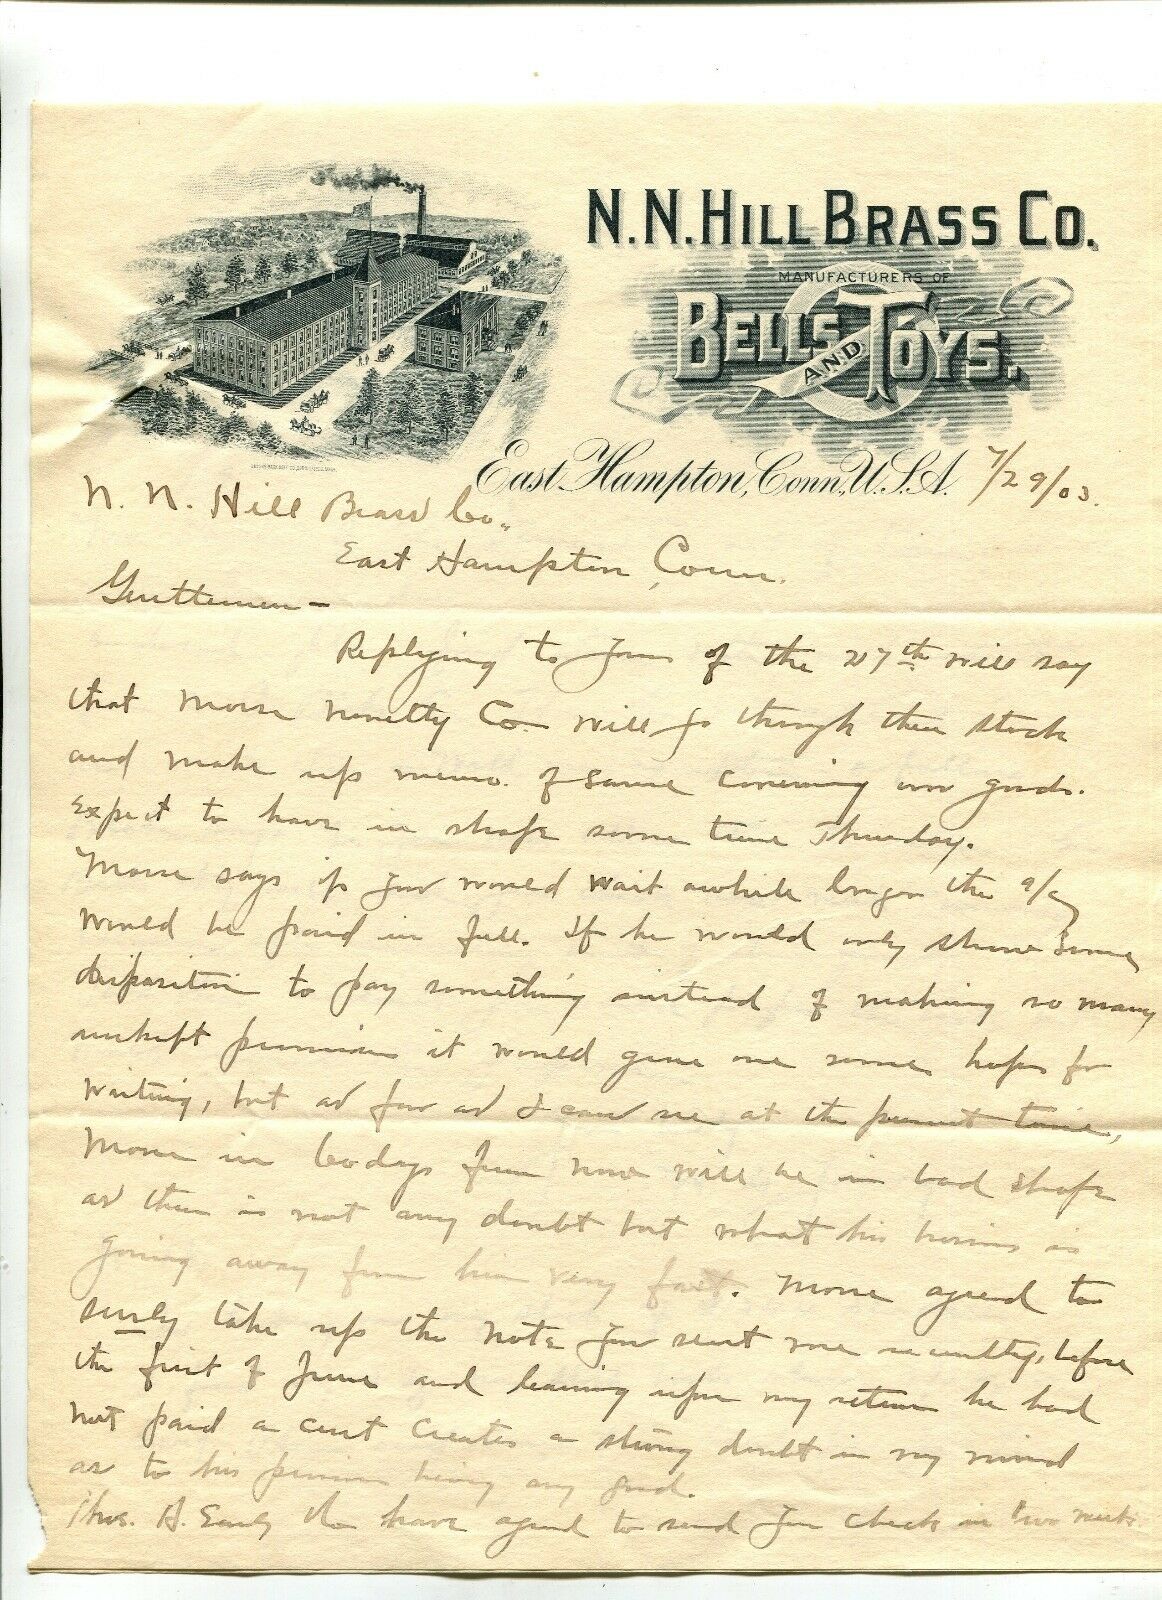 N. N. HILL BRASS CO.
MANUFACTURERS OF
BELLS AND TOYS.
East Hampton, Conn., U.S.A. 7/29/03.
N. N. Hill Brass Co.,
East Hampton, Conn.
Gentlemen —
Replying to yours of the 27th will say
that Morse Novelty Co. will go through their stock
and make up memo. of same covering our goods.
Expect to have in shape some time Thursday.
Morse says if you would wait awhile longer the a/c
would be paid in full. If he would only show some
disposition to pay something instead of making so many
unkept promises it would give one some hopes for
waiting, but as far as I can see at the present time,
Morse in 60 days from now will be in bad shape
as there is not any doubt but what his business is
going away from him very fast. Morse agreed to
surely take up the note you sent me recently, before
the first of June and learning upon my return he had
not paid a cent creates a strong doubt in my mind
as to his promises being any good.
Thos. H. Co have agreed to send you check in two weeks